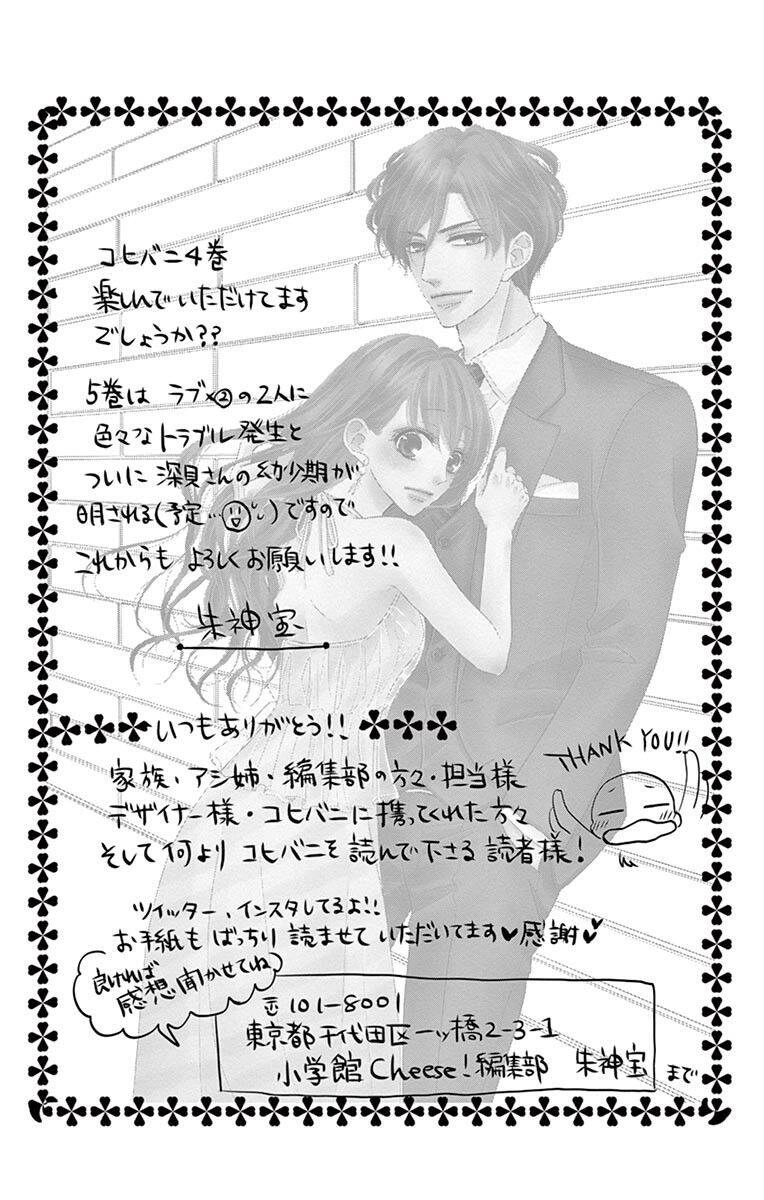 コヒバニ4巻
楽しんでいただけてます
でしょうか??
5巻は ラブ×②の2人に
色々なトラブル発生と
ついに深見さんの幼少期が
明される(予定…)ですので
これからも よろしくお願いします!!
朱神宝
いつもありがとう!!
THANK YOU!!
家族・アシ姉・編集部の方々・担当様
デザイナー様・コヒバニに携ってくれた方々
そして何より コヒバニを読んで下さる 読者様!
ツイッター、インスタしてるよ!!
お手紙も ばっちり 読ませて いただいてます♥感謝♥
良ければ
感想聞かせてね
〒101-8001
東京都千代田区一ッ橋2-3-1
小学館 Cheese!編集部 朱神宝 まで